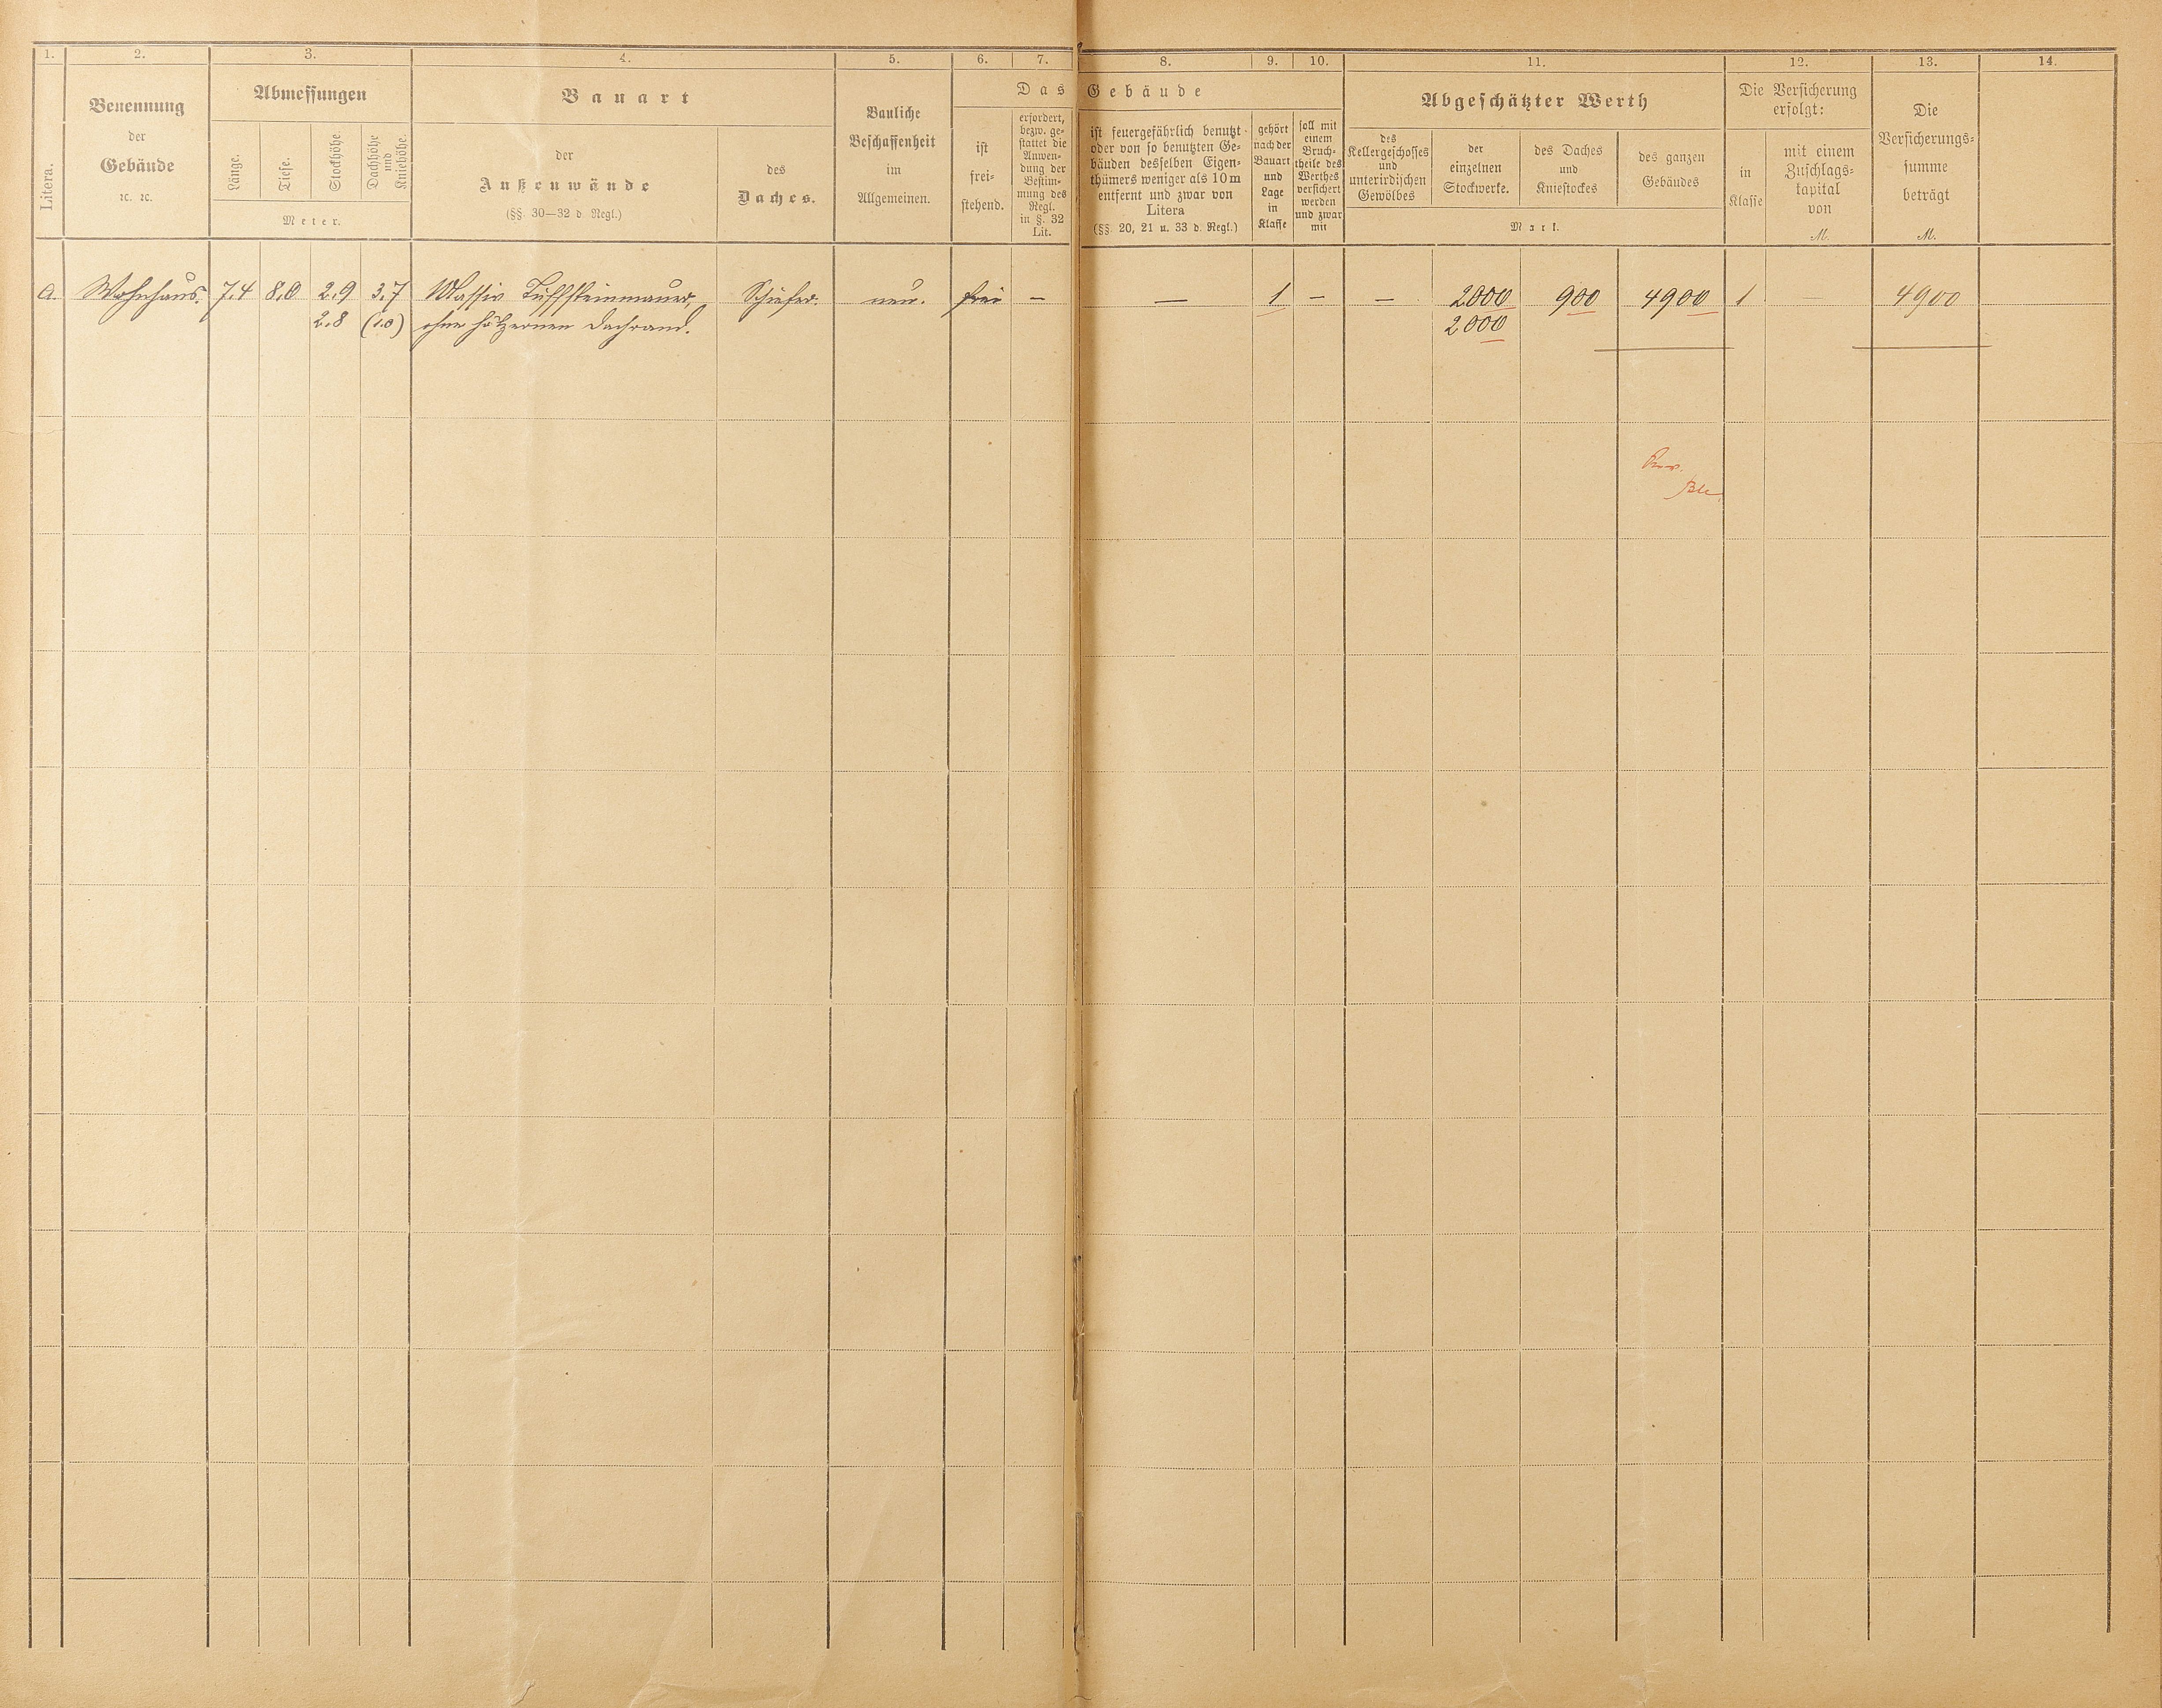 1. 2. 3. 4. 5. 6. 7. 8. 9. 10. 11. 12. 13. 14.
Litera.
Benennung
der
Gebäude
ꝛc. ꝛc.
Abmessungen
Länge.
Tiefe.
Stockhöhe
Dachhöhe
und
Kniehöhe.
Meter.
Bauart
der
Außenwände
(§§. 30—32 d. Regl.)
des
Daches.
Bauliche
Beschaffenheit
im
Allgemeinen.
Das Gebäude
ist
frei-
stehend.
erfordert,
bezw. ge-
stattet die
Anwen-
dung der
Bestim-
mung des
Regl.
in §. 32
Lit.
ist feuergefährlich benutzt
oder von so benutzten Ge-
bäuden desselben Eigen-
thümers weniger als 10 m
entfernt und zwar von
Litera
(§§. 20, 21 u. 33 d. Regl.)
gehört
nach der
Bauart
und
Lage
in
Klasse
soll mit
einem
Bruch-
theile des
Werthes
versichert
werden
und zwar
mit
Abgeschätzter Werth
des
Kellergeschosses
und
unterirdischen
Gewölbes
der
einzelnen
Stockwerke.
des Daches
und
Kniestockes
des ganzen
Gebäudes
Mark.
Die Versicherung
erfolgt:
in
Klasse
mit einem
Zuschlags-
kapital
von
M.
Die
Versicherungs-
summe
beträgt
M.
a. Wohnhaus. 7.4 8.0 2.9 3.7 Massiv Tuffsteinmauer, Schiefer. neu. frei — — 1 — — 2000 900 4900 1 — 4900
2.8 (1.0) ohne hölzernen Dachrand. 2000